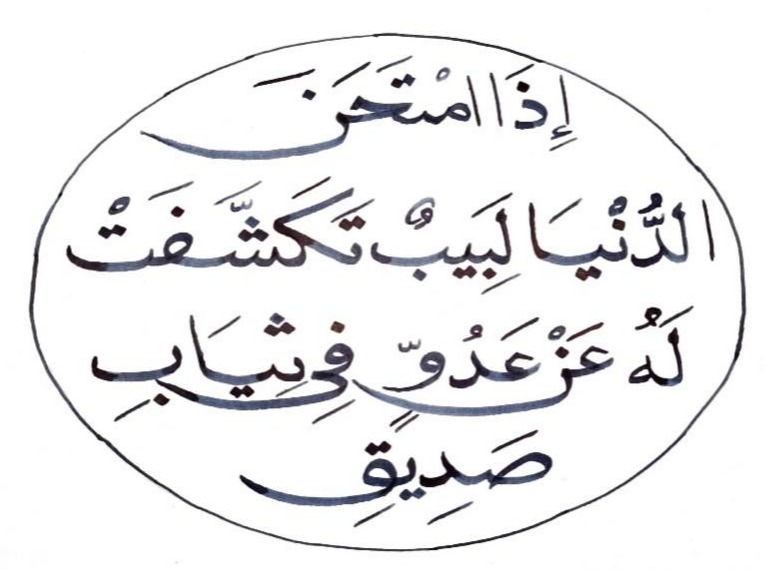 إِذَا امْتَحَنَ
الدُّنْيَا لَبِيبٌ تَكَشَّفَتْ
لَهُ عَنْ عَدُوٍّ فِي ثِيَابِ
صَدِيقِ